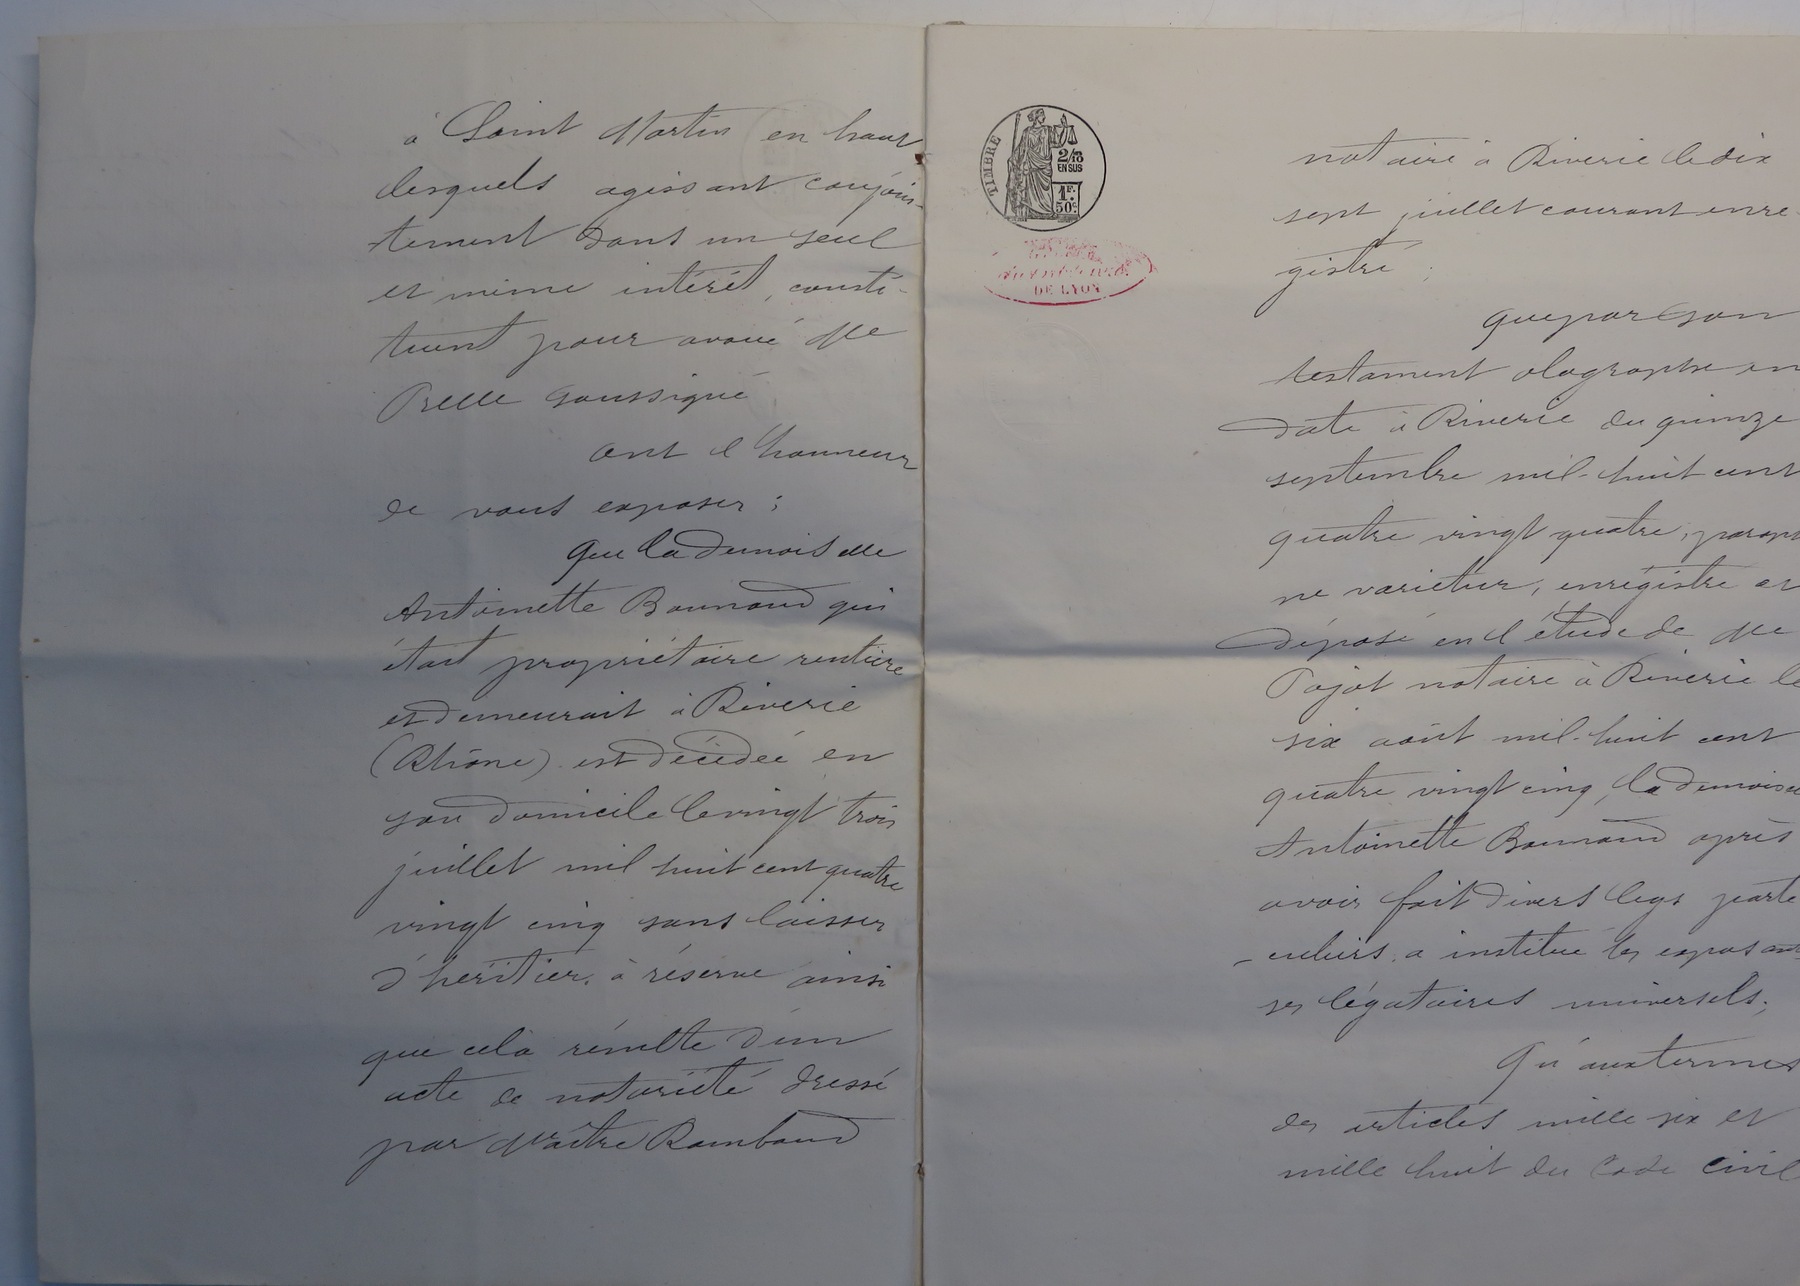 à Saint Martin en haut
lesquels agissant conjoin-
tement dans un seul
et même intérêt, consti-
tuent pour avoué Me
Prelle soussigné
ont l'honneur
de vous exposer ;
que la demoiselle
Antoinette Bonnand qui
était propriétaire rentière
et demeurait à Riverie
(Rhône) est décédée en
son domicile le vingt trois
juillet mil huit cent quatre
vingt cinq sans laisser
d'héritier à réserve ainsi
que cela résulte d'un
acte de notoriété dressé
par Maître Rambaud
TIMBRE
2/10
EN SUS
1F.
50c.
DE LYON
notaire à Riverie le dix
sept juillet courant enre-
gistré ;
que par son
testament olographe en
date à Riverie du quinze
septembre mil-huit cent
quatre vingt quatre, paraph
ne varietur, enregistré et
déposé en l'étude de Me
Pojot notaire à Riverie le
six août mil-huit cent
quatre vingt cinq, la demoise
Antoinette Bonnand après
avoir fait divers legs parti
-culiers, a institué les exposants
ses légataires universels ;
Qu'aux termes
des articles mille six et
mille huit du Code civil